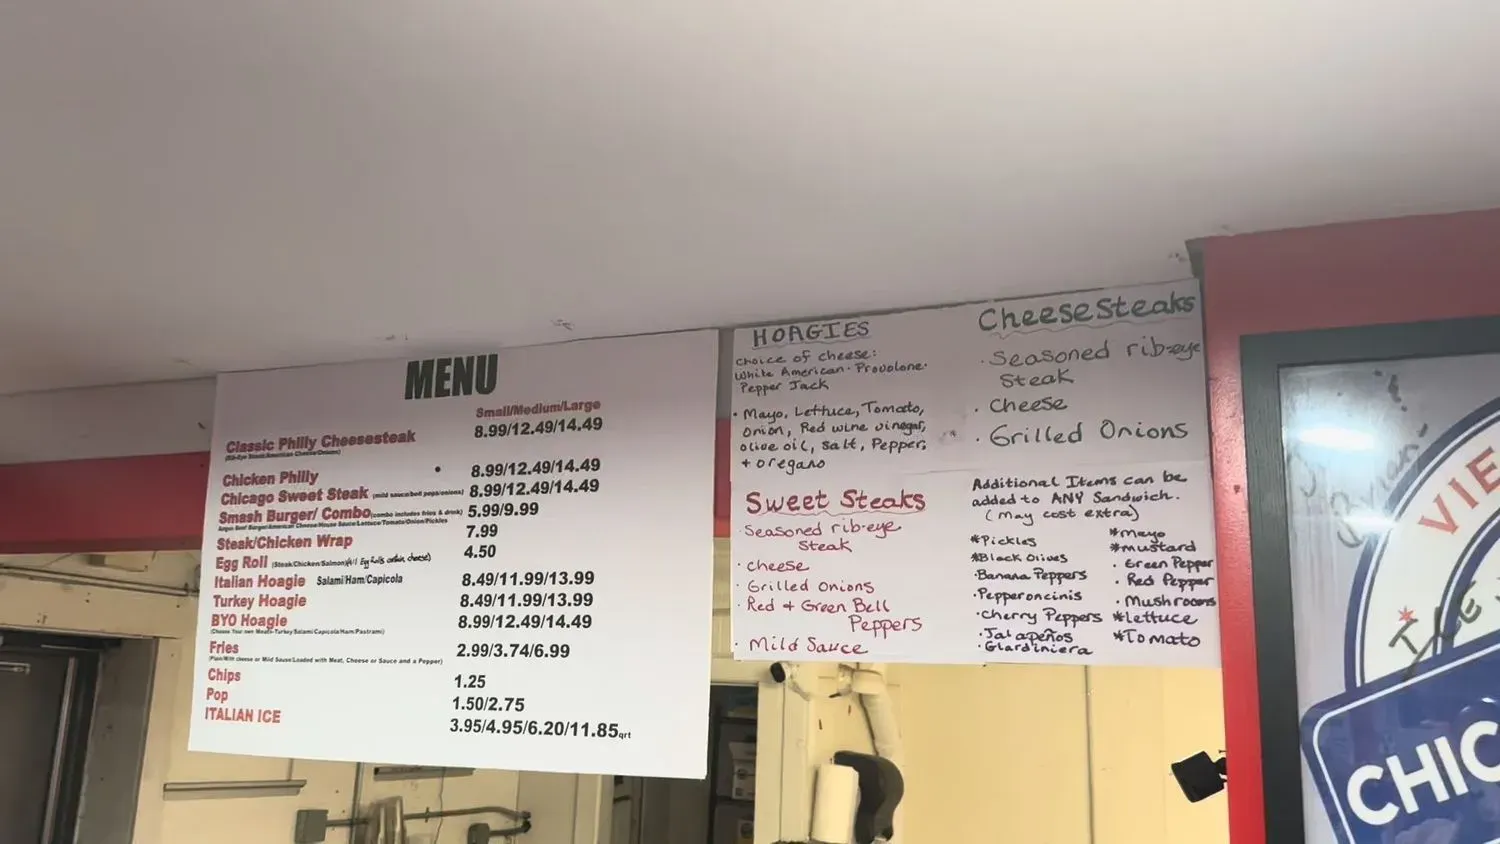 MENU
Small/Medium/Large
Classic Philly Cheesesteak 8.99/12.49/14.49
(Rib-Eye Steak/American Cheese/Onions)
Chicken Philly 8.99/12.49/14.49
Chicago Sweet Steak (mild sauce/bell pops/onions) 8.99/12.49/14.49
Smash Burger/ Combo (combo includes fries & drink) 5.99/9.99
Angus Beef Burger/American Cheese/House Sauce/Lettuce/Tomato/Onion/Pickles
Steak/Chicken Wrap 7.99
Egg Roll (Steak/Chicken/Salmon) (All Egg Rolls contain cheese) 4.50
Italian Hoagie Salami/Ham/Capicola 8.49/11.99/13.99
Turkey Hoagie 8.49/11.99/13.99
BYO Hoagie 8.99/12.49/14.49
(Choose Your own Meats-Turkey/Salami/Capicola/Ham/Pastrami)
Fries 2.99/3.74/6.99
(Plain/With cheese or Mild Sauce/Loaded with Meat, Cheese or Sauce and a Pepper)
Chips 1.25
Pop 1.50/2.75
ITALIAN ICE 3.95/4.95/6.20/11.85qrt
HOAGIES
Choice of cheese:
White American · Provolone ·
Pepper Jack
· Mayo, Lettuce, Tomato,
Onion, Red wine vinegar,
olive oil, salt, Pepper,
+ oregano
CheeseSteaks
· Seasoned rib-eye
Steak
· Cheese
· Grilled Onions
Sweet Steaks
· Seasoned rib-eye
Steak
· cheese
· Grilled Onions
· Red + Green Bell
Peppers
· Mild Sauce
Additional Items can be
added to ANY Sandwich.
(May cost extra)
*Pickles
*Black Olives
·Banana Peppers
·Pepperoncinis
·Cherry Peppers
·Jalapeños
·Giardiniera
*Mayo
*Mustard
· Green Pepper
· Red Pepper
· Mushrooms
*lettuce
*Tomato
VIE
CHIC